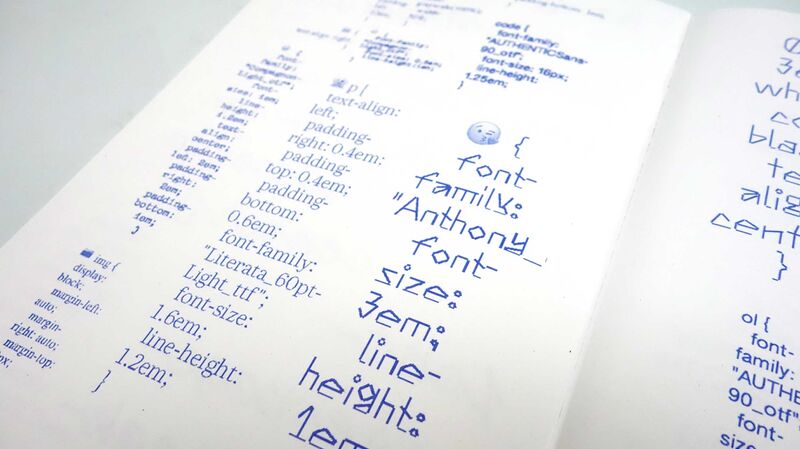 code {
font-family:
"AUTHENTICSans-
90_otf";
font-size: 16px;
line-height:
1.25em;
}
{
font-
family:
"companion-
light_otf";
font-
size: 1em;
line-
height:
1.2em;
text-
align:
center;
padding-
left: 2em;
padding-
right:
2em;
padding-
bottom:
1em;
}
📷 img {
display:
block;
margin-left:
auto;
margin-
right: auto;
margin-top:
px;
p {
text-align:
left;
padding-
right: 0.4em;
padding-
top: 0.4em;
padding-
bottom:
0.6em;
font-family:
"Literata_60pt-
Light_ttf";
font-size:
1.6em;
line-height:
1.2em;
}
😗 {
font-
family:
"Anthony_
font-
size:
3em;
line-
height:
1em
3em
wh
co
bla
te
alig
cent
}
ol {
font-
family:
"AUTHE
90_otf"
font-
size